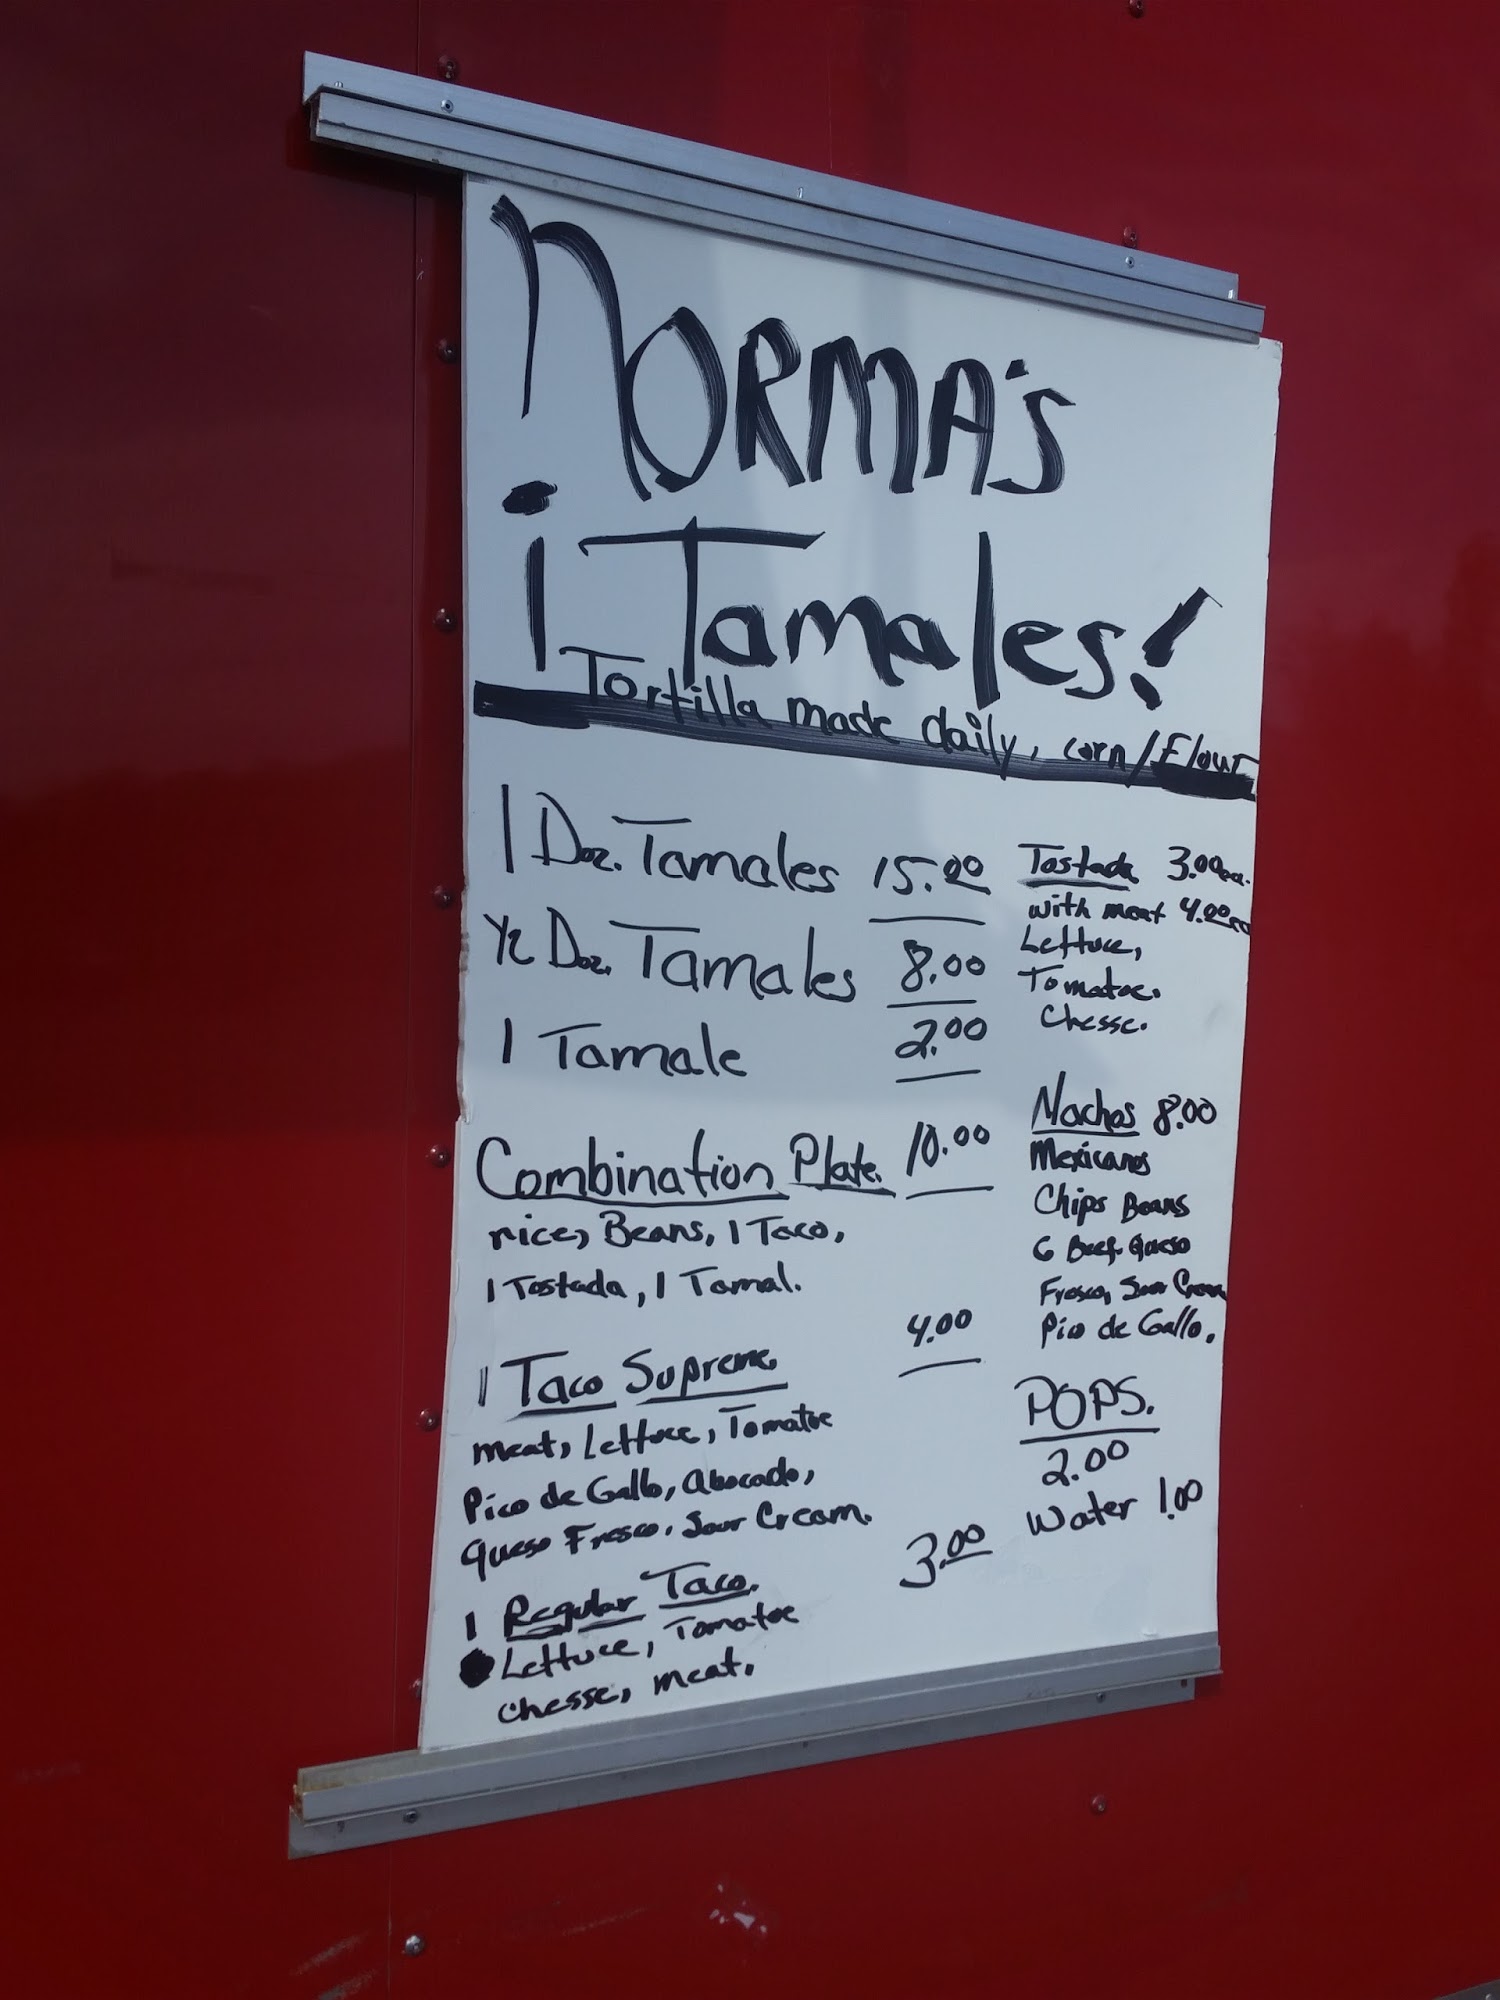 NORMA'S
¡Tamales!
Tortilla made daily, corn/Flour
1 Doz. Tamales 15.00
1/2 Doz. Tamales 8.00
1 Tamale 2.00
Combination Plate. 10.00
rice, Beans, 1 Taco,
1 Tostada, 1 Tamal.
1 Taco Supreme 4.00
meat, Lettuce, Tomatoe
Pico de Gallo, Abocado,
Queso Fresco, Sour Cream.
1 Regular Taco. 3.00
Lettuce, Tomatoe
chesse, meat.
Tostada 3.00 ea.
with meat 4.00 ea
Lettuce,
Tomatoe.
chesse.
Nachos 8.00
Mexicanos
Chips Beans
G Beef. Queso
Fresco, Sour Cream
Pico de Gallo.
POPS.
2.00
Water 1.00